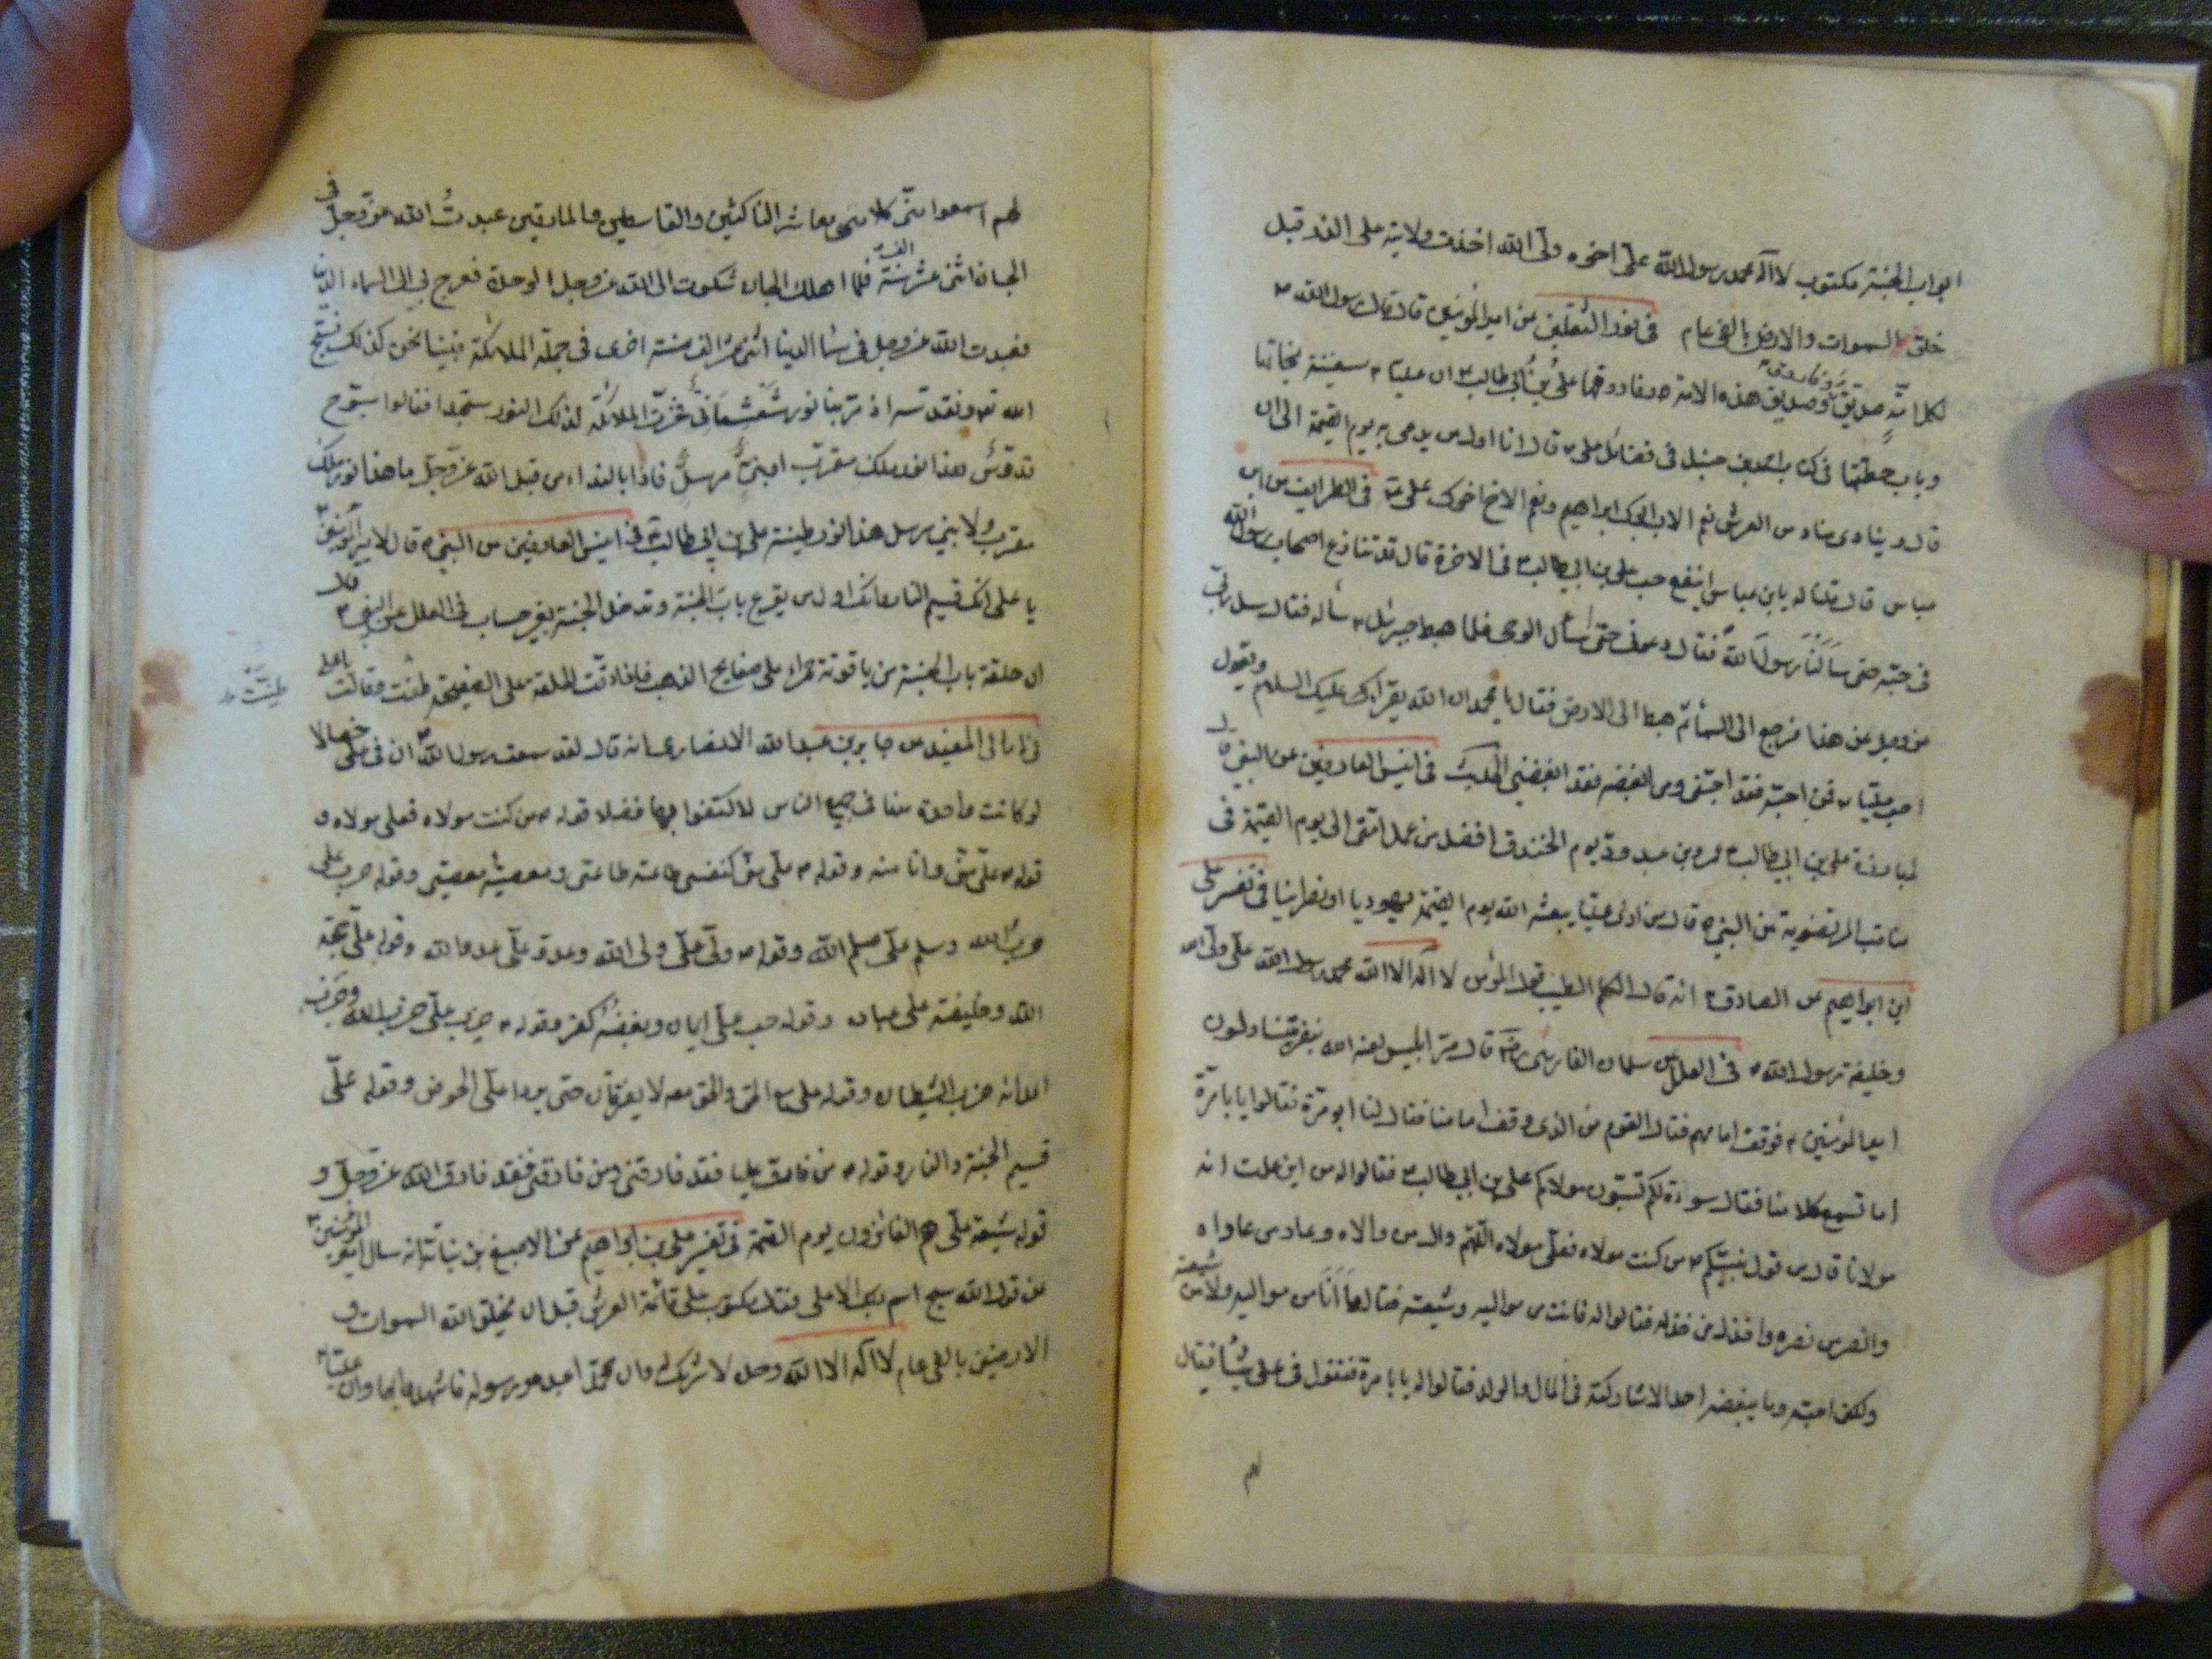 ابواب الجنة مكتوب لا اله محمد رسول الله على اخوه ولى الله اخذت ولايته على الذر قبل
خلق السموات والارض بالفى عام في نور الثقلين عن امير المؤمنين قال قال رسول الله ص
لكل امة صديق وفاروق وصديق هذه الامة وفاروقها على بن ابي طالب ان عليا سفينة نجاتها
وباب حطتها في كتاب احمد بن حنبل في فضائل على قال انا اول من يدعى به يوم القيمة الى ان
قال وينادى مناد من العرش نعم الاب ابوك ابراهيم ونعم الاخ اخوك على في الطرايف عن ابن
عباس قال قلنا له يابن عباس اينفع حب على بن ابي طالب في الاخرة قال قد تنازع اصحاب رسول الله
في حبه حتى سألنا رسول الله فقال دعونى حتى اسأل الوحى فلما هبط جبرئيل سأله فقال سل ربي
عز وجل عن هذا فرجع الى السماء ثم هبط الى الارض فقال يا محمد ان الله يقرأك عليك السلم ويقول
احب عليا فمن احبه فقد احبنى ومن ابغضه فقد ابغضني الحديث في انيس العارفين عن النبي ص
لمبارزة على بن ابي طالب عمرو بن عبد ود يوم الخندق افضل من عمل امتى الى يوم القيمة في
مناقب المرتضوية عن النبي ص قال من اذى عليا يبعثه الله يوم القيمة يهوديا او نصرانيا في تفسير على
ابن ابراهيم عن الصادق انه قال الكلم الطيب قول المؤمن لا اله الا الله محمد رسول الله على ولى الله
وخليفة رسول الله في العلل عن سلمان الفارسي قال مر ابليس لعنه الله بنفر يتناولون
امير المؤمنين فوقف امامهم فقال القوم من الذى وقف امامنا فقال لنا ابو مرة فقالوا يا با مرة
اما تسمع كلامنا فقال سوءة لكم تسبون مولاكم على بن ابي طالب فقالوا له من اين علمت انه
مولانا قال من قول نبيكم من كنت مولاه فعلى مولاه اللهم وال من والاه وعاد من عاداه
وانصر من نصره واخذل من خذله فقالوا له فانت من مواليه وشيعته فقال ما انا من مواليه ولا من شيعته
ولكن احبه وما يبغضه احد الا شاركته في المال والولد فقالوا له يا با مرة فتقول في على شيئا فقال
لهم
لهم اسمعوا منى كلامى معاشر الناكثين والقاسطين والمارقين عبدت الله عز وجل في
الجان اثنى عشر الف سنة فلما اهلك الجان شكوت الى الله عز وجل الوحدة فعرج بي الى السماء الدنيا
فعبدت الله عز وجل في سماء الدنيا اثنى عشر الف سنة اخرى في جملة الملائكة فبينا نحن كذلك نسبح
الله تع ونقدسه اذ مر بنا نور شعشعانى فخرت الملائكة لذلك النور سجدا فقالوا سبوح
قدوس هذا نور ملك مقرب او نبي مرسل فاذا بالنداء من قبل الله عز وجل ما هذا نور ملك
مقرب ولا نبي مرسل هذا نور طينة على بن ابي طالب في انيس العارفين عن النبي ص قال لامير المؤمنين
يا على انك قسيم النار وانك اول من يقرع باب الجنة وتدخل الجنة بغير حساب في العلل عن النبي قال
ان حلقة باب الجنة من ياقوتة حمراء على صفايح الذهب فاذا دقت الحلقة على الصفيحة طنت وقالت يا على
طنت
في امالى المفيد عن جابر بن عبد الله الانصارى انه قال لقد سمعت رسول الله ان في على خصالا
لو كانت واحدة منها في جميع الناس لاكتفوا بها فضلا قوله من كنت مولاه فعلى مولاه و
قوله على منى وانا منه وقوله على منى كنفسى طاعته طاعتى ومعصيته معصيتى وقوله حرب على
حرب الله وسلم على سلم الله وقوله ولى على ولى الله وعدو على عدو الله وقوله على حجة
الله وخليفته على عباده وقوله حب على ايمان وبغضه كفر وقوله حزب على حزب الله وحزب
اعدائه حزب الشيطان وقوله على مع الحق والحق معه لا يفترقان حتى يردا على الحوض وقوله على
قسيم الجنة والنار وقوله من فارق عليا فقد فارقنى ومن فارقنى فقد فارق الله عز وجل و
قوله شيعة على هم الفائزون يوم القيمة في تفسير على بن ابراهيم عن الاصبغ بن نباتة انه سال امير المؤمنين
عن قول الله سبح اسم ربك الاعلى فقال مكتوب على قائمة العرش قبل ان يخلق الله السموات و
الارضين بالفى عام لا اله الا الله وحده لا شريك له وان محمدا عبده ورسوله فاشهدوا بهما وان عليا